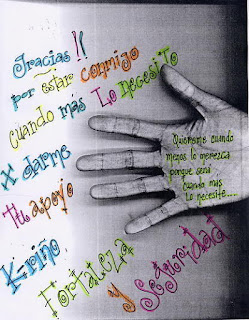 Gracias !!
por estar conmigo
cuando más Lo necesito
x darme
tu apoyo
K-riño
Fortaleza
y Seguridad
Quiereme cuando
menos lo merezca
porque sera
cuando mas
lo necesite.....